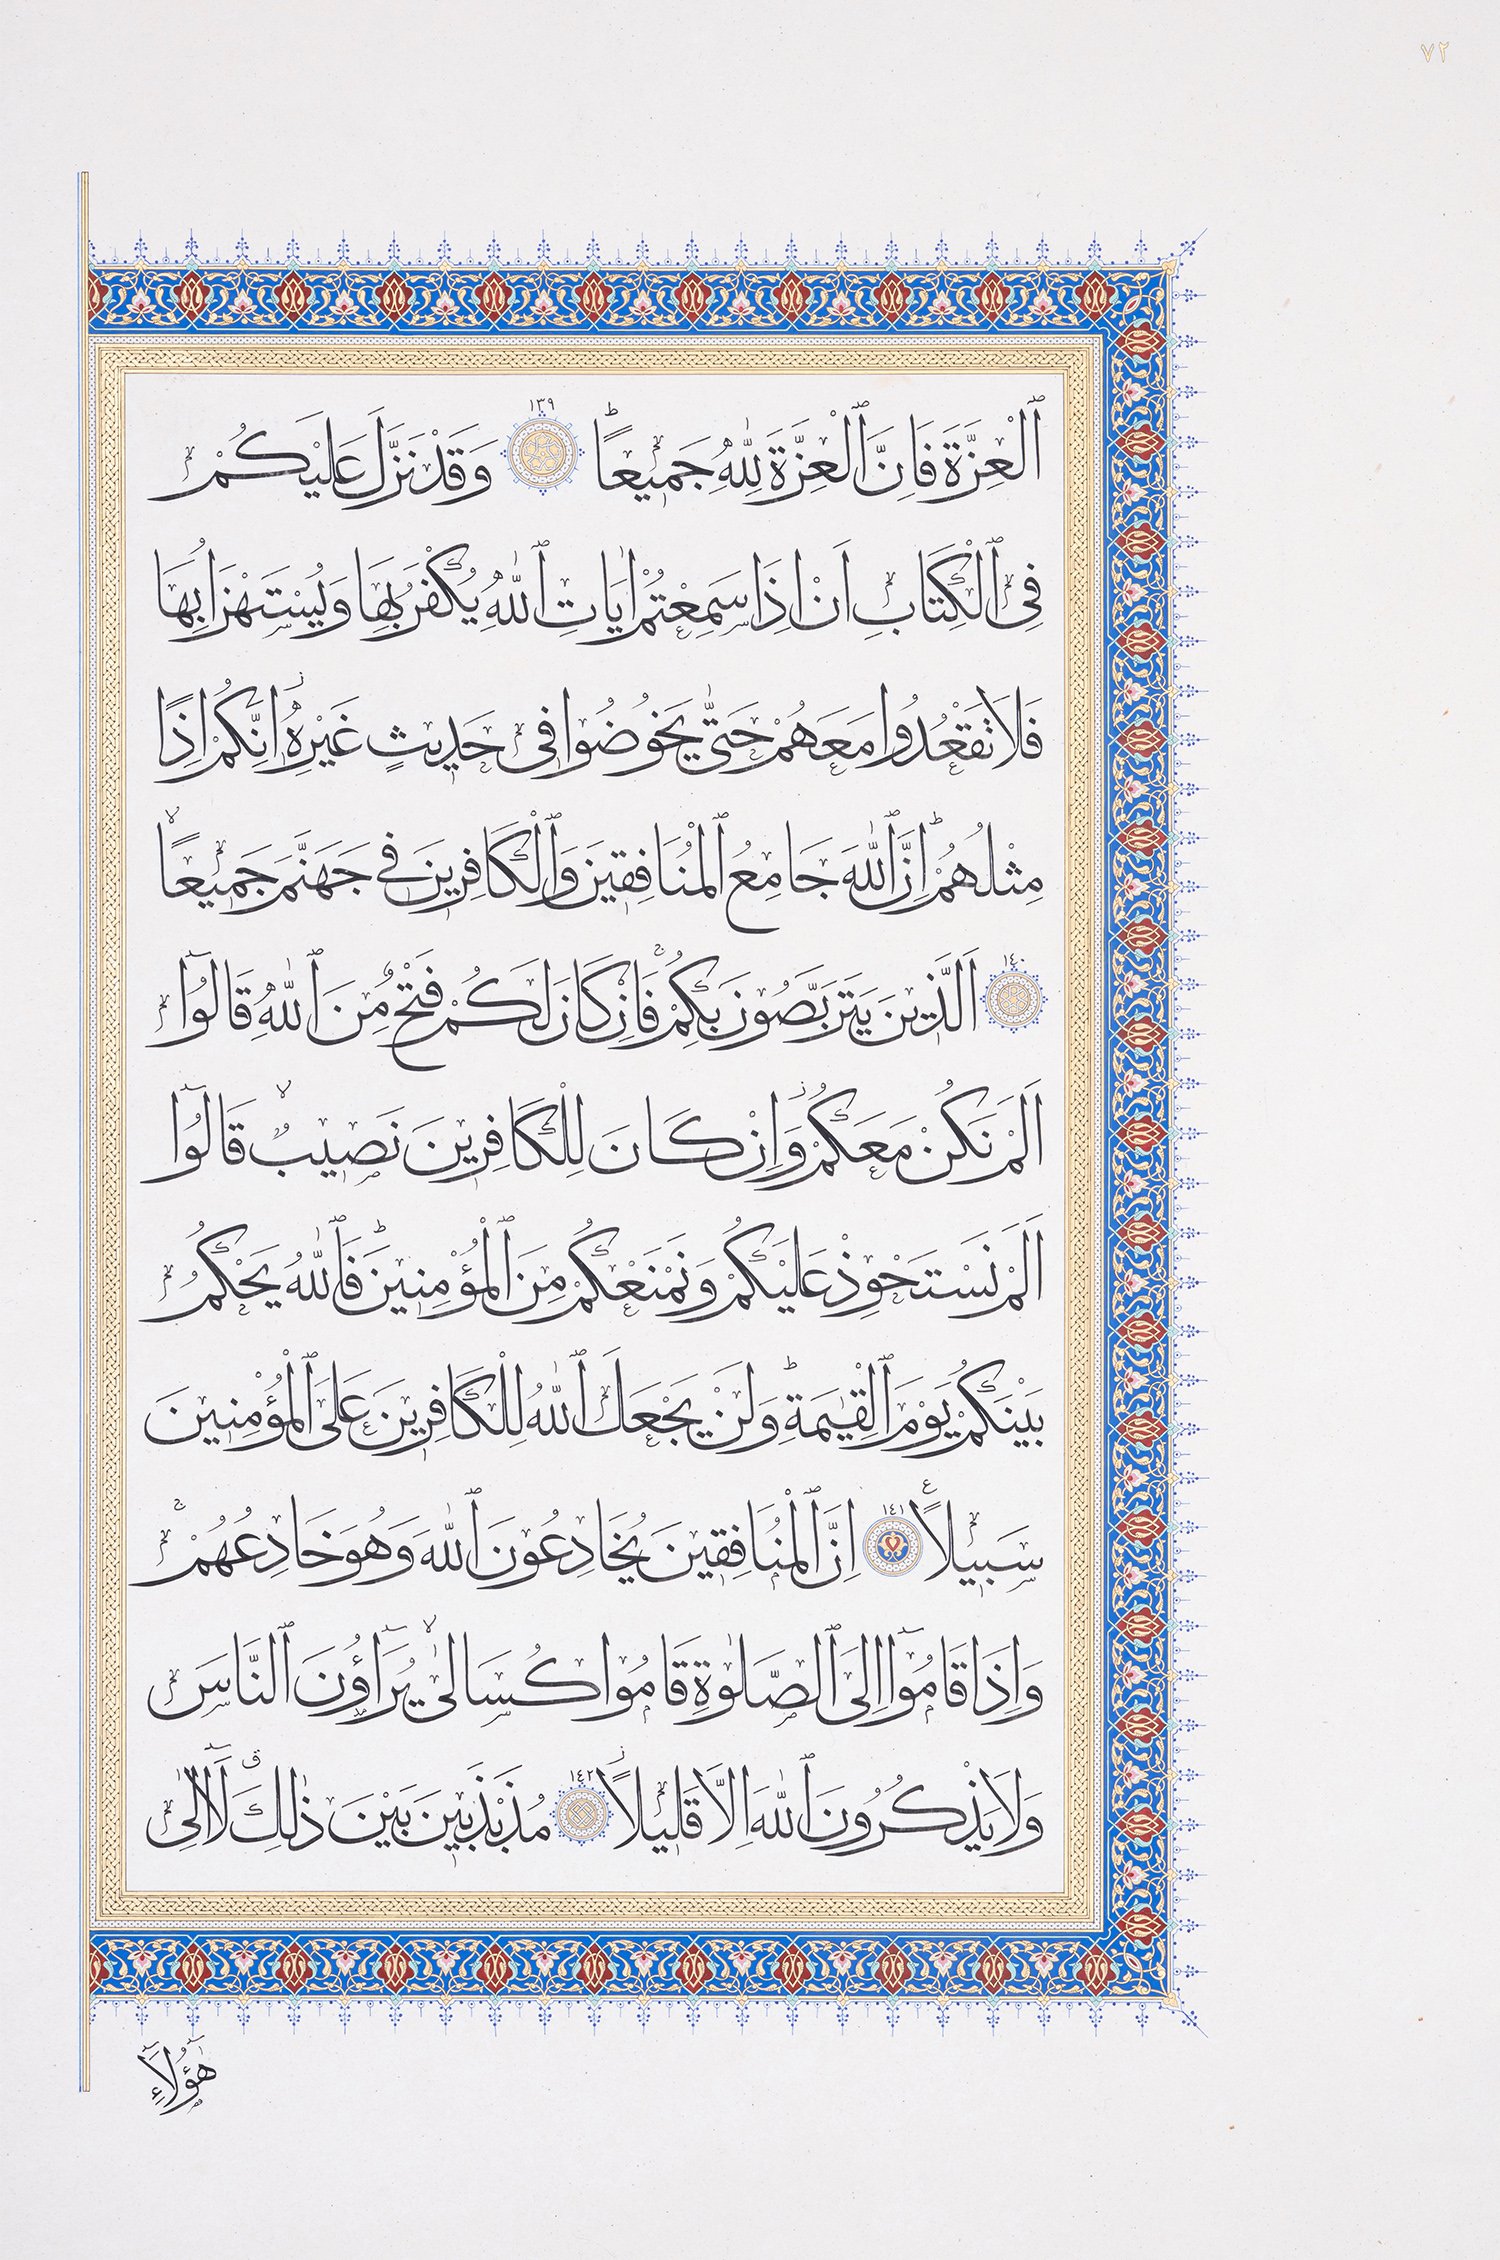 ٧٢
ٱلْعِزَّةَ فَاِنَّ ٱلْعِزَّةَ لِلّٰهِ جَمٖيعًاؕ ١٣٩ وَقَدْ نَزَّلَ عَلَيْكُمْ
فِى ٱلْكِتَابِ اَنْ اِذَا سَمِعْتُمْ اٰيَاتِ ٱللّٰهِ يُكْفَرُ بِهَا وَيُسْتَهْزَاُ بِهَا
فَلَا تَقْعُدُوا مَعَهُمْ حَتّٰى يَخُوضُوا فٖى حَدٖيثٍ غَيْرِهٖۘ اِنَّكُمْ اِذًا
مِثْلُهُمْؕ اِنَّ ٱللّٰهَ جَامِعُ ٱلْمُنَافِقٖينَ وَٱلْكَافِرٖينَ فٖى جَهَنَّمَ جَمٖيعًاۙ
١٤٠ اَلَّذٖينَ يَتَرَبَّصُونَ بِكُمْۚ فَاِنْ كَانَ لَكُمْ فَتْحٌ مِنَ ٱللّٰهِ قَالُٓوا
اَلَمْ نَكُنْ مَعَكُمْؗ وَاِنْ كَانَ لِلْكَافِرٖينَ نَصٖيبٌۙ قَالُٓوا
اَلَمْ نَسْتَحْوِذْ عَلَيْكُمْ وَنَمْنَعْكُمْ مِنَ ٱلْمُؤْمِنٖينَؕ فَٱللّٰهُ يَحْكُمُ
بَيْنَكُمْ يَوْمَ ٱلْقِيٰمَةِؕ وَلَنْ يَجْعَلَ ٱللّٰهُ لِلْكَافِرٖينَ عَلَى ٱلْمُؤْمِنٖينَ
سَبٖيلًا ١٤١ اِنَّ ٱلْمُنَافِقٖينَ يُخَادِعُونَ ٱللّٰهَ وَهُوَ خَادِعُهُمْۚ
وَاِذَا قَامُٓوا اِلَى ٱلصَّلٰوةِ قَامُوا كُسَالٰىۙ يُرَٓاؤُنَ ٱلنَّاسَ
وَلَا يَذْكُرُونَ ٱللّٰهَ اِلَّا قَلٖيلًاؗ ١٤٢ مُذَبْذَبٖينَ بَيْنَ ذٰلِكَۗ لَٓا اِلٰى
هٰٓؤُلَٓاءِ